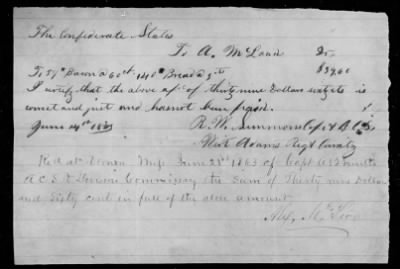 The Confederate States
To A. McLean Dr
To 51 lb Bacon @ 60 cts 140 lb Bread @ 5 cts $39.60
I certify that the above a/c of thirty nine Dollars sixty cts is
correct and just and has not been paid.
June 14th 1863 R. M. Simmons Capt & A.C.S.
Wirt Adams Regt Cavalry
Rec'd at Miss June 23rd 1863 of Capt
A C S & Division Commissary the sum of Thirty nine Dollars
and Sixty cents in full of the above amount